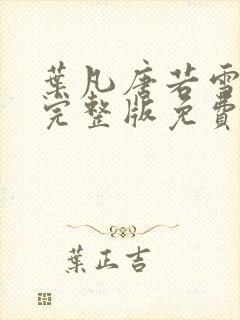 葉凡唐若雪
完整版免費
葉正吉